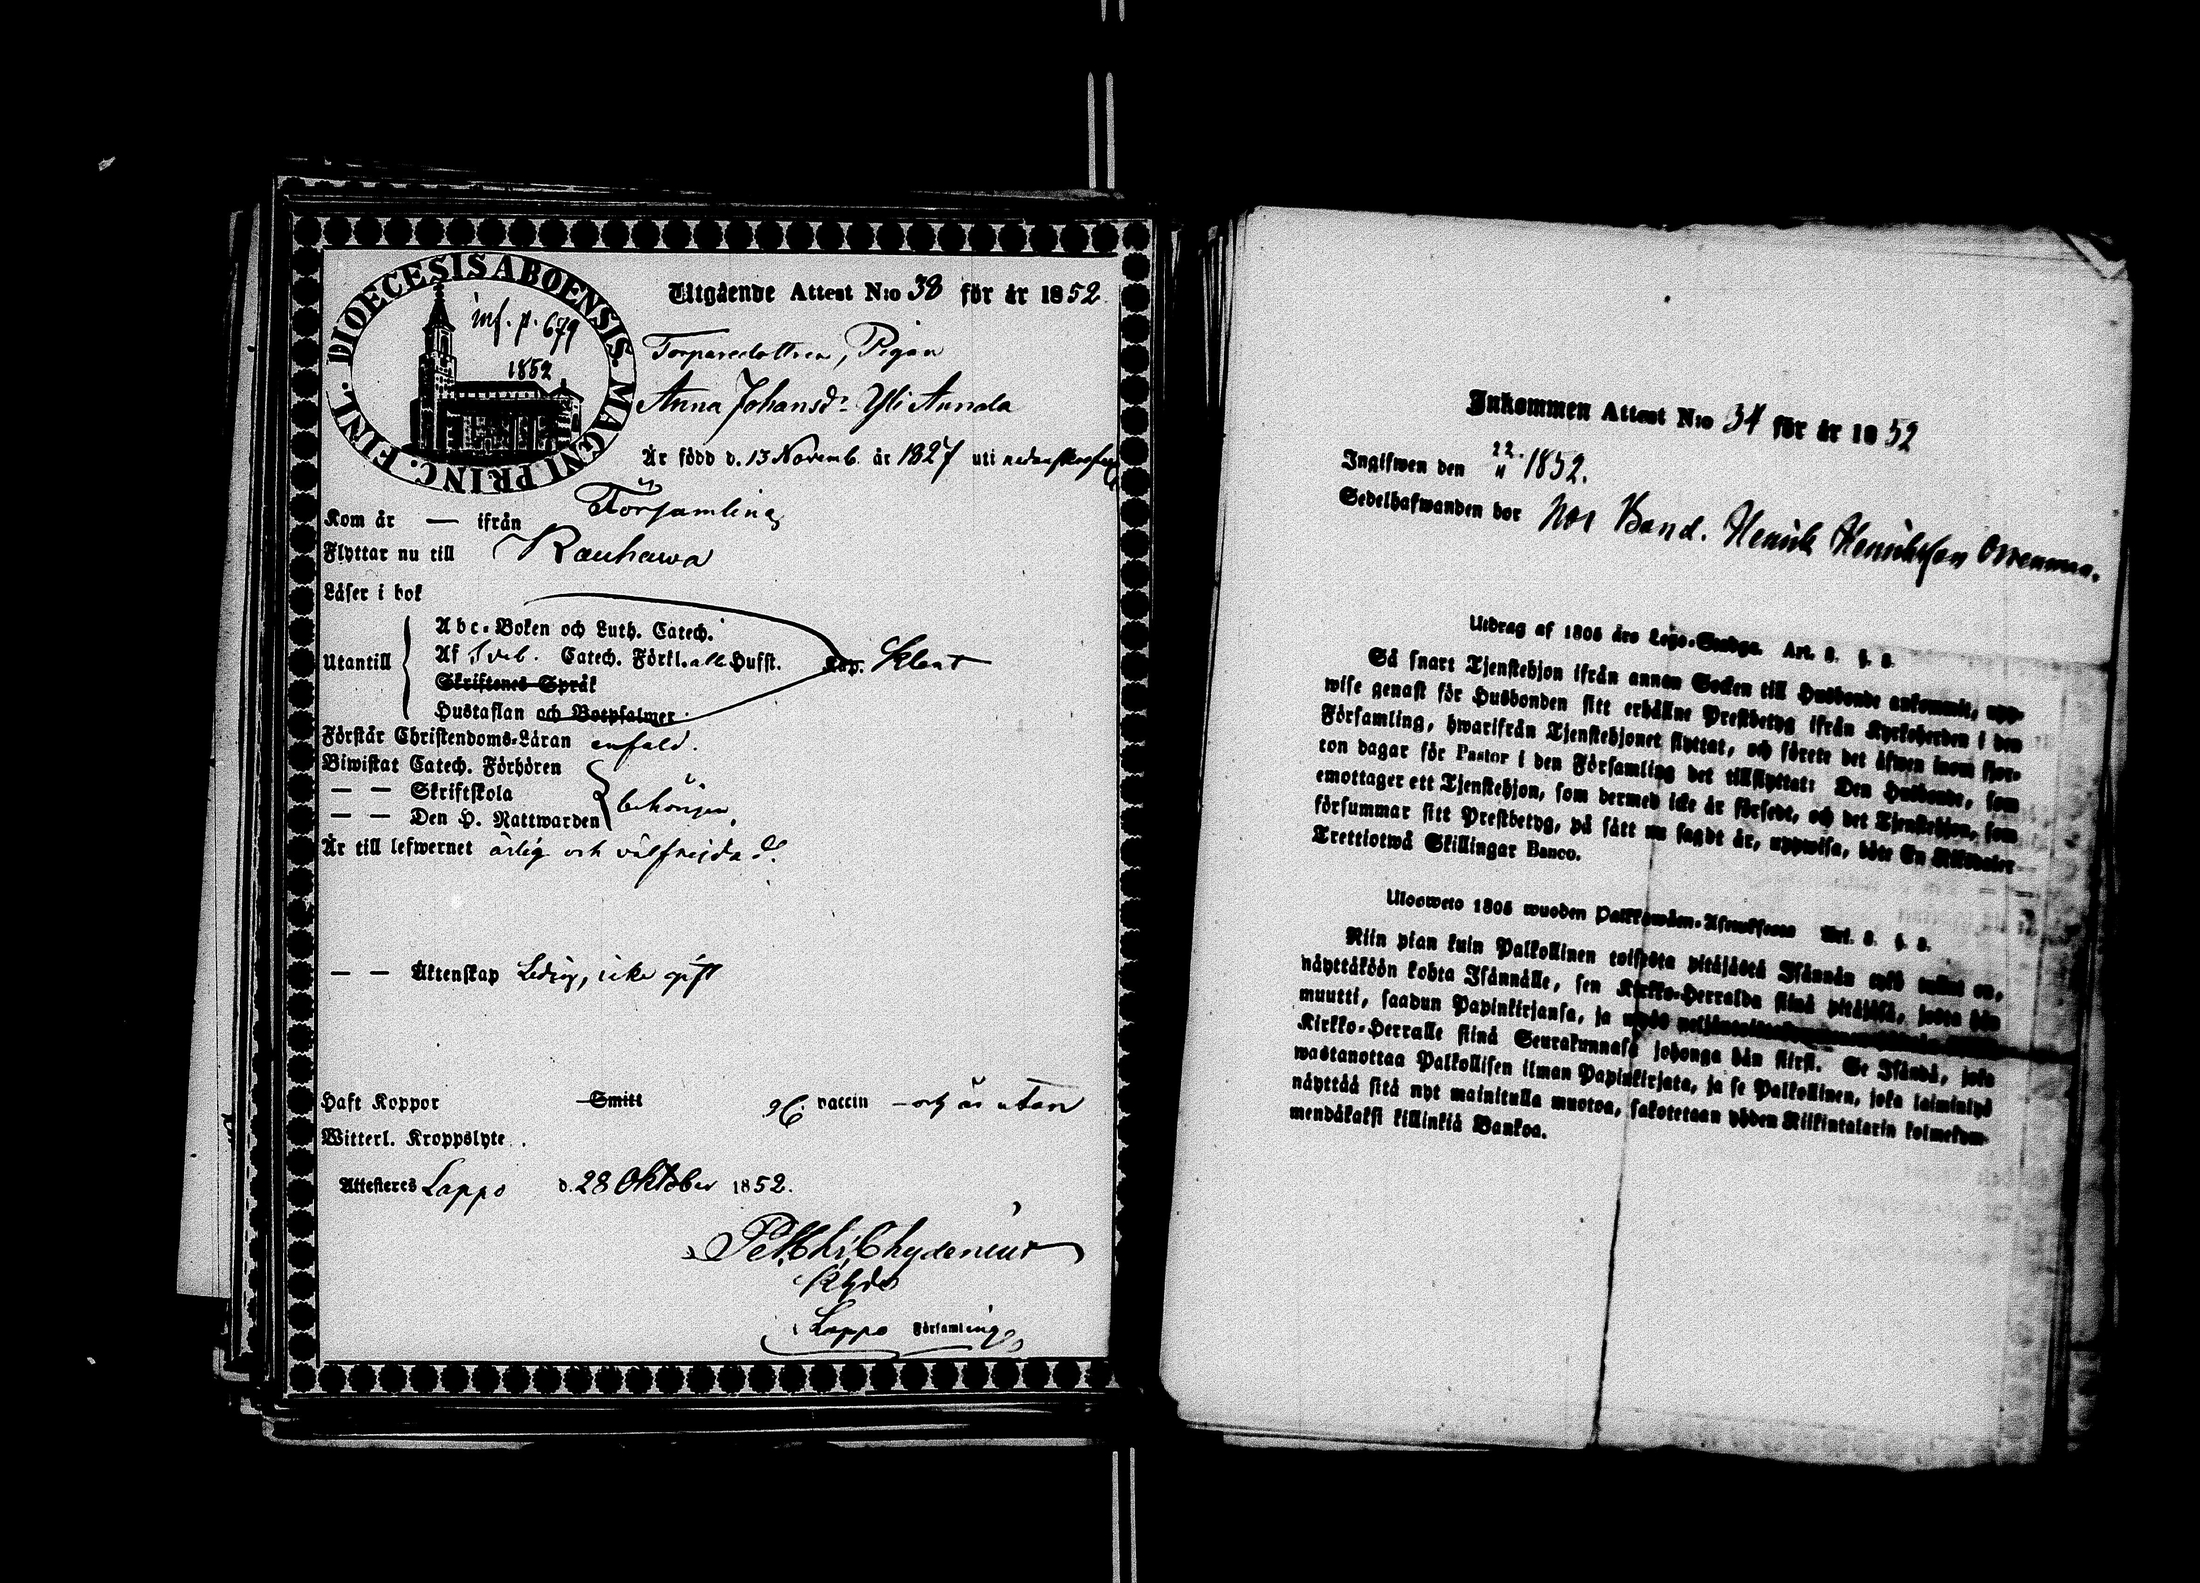 DIOECESIS ABOENSIS. MAGNI PRINC. FINL.
inf. p. 679
1852
Utgående Attest N:o 38 för år 1852
Torparedottren, Pigan
Anna Johansdr Yli Annala
Är född d. 13 Novemb. år 1827 uti
Församling
Kom år — ifrån
Flyttar nu till Kauhawa
Läser i bok
Utantill
Abc-Boken och Luth. Catech.
Af Sveb. Catech. Förkl. alla Hufst.
Skriftenes Språk
Hustaflan och Botpsalmer
Förstår Christendoms-Läran enfald.
Biwistat Catech. Förhören
— — Skriftskola
— — Den H. Nattwarden
behörigen.
Är till lefwernet ärlig och välfrejdad.
— — Äktenskap Ledig, icke gift
Haft Koppor Smitt vaccin — och är utan
Witterl. Kroppslyte.
Attesteres Lappo d. 28 Oktober 1852.
Chydenius
Lappo Församling
Inkommen Attest N:o 34 för år 1852
Ingifwen den 22/11 1852.
Sedelhafwanden bor hos Bond. Henrik Henriksson
Utdrag af 1805 års Lego-Stadga. Art. 8. §. 8.
Så snart Tjenstehjon ifrån annan Socken till Husbonde ankommit, upp-
wise genast för Husbonden sitt erhållne Prestbetyg ifrån Kyrkoherden i den
Församling, hwarifrån Tjenstehjonet flyttat, och förete det äfwen inom fjor-
ton dagar för Pastor i den Församling det tillflyttat: Den Husbonde, som
emottager ett Tjenstehjon, som dermed icke är försedt, och det Tjenstehjon, som
försummar sitt Prestbetyg, på sätt nu sagdt är, uppwisa, böte En Riksdaler
Trettiotwå Skillingar Banco.
Ulosweto 1805 wuoden Palkkawäen-Asetuksesta Art. 8. §. 8.
Niin pian kuin Palkollinen toisesta pitäjästä Isännän tykö tullut on,
näyttäköön kohta Isännälle, sen Kirkko-Herralda siinä pitäjäsä, josta hän
muutti, saadun Papinkirjansa, ja myös
Kirkko-Herralle siinä Seurakunnasa johonga hän siirsi. Se Isändä, joka
wastanottaa Palkollisen ilman Papinkirjata, ja se Palkollinen, joka laiminlyö
näyttää sitä nyt mainitulla muotoa, sakotetaan yhden Riikintalarin kolmekym-
mendäkaksi killinkiä Bankoa.